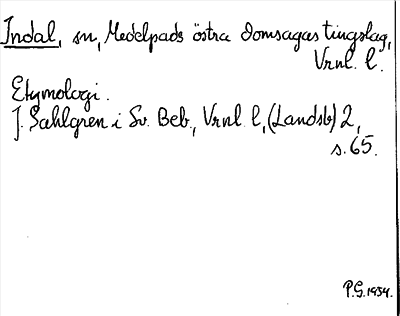 Indal, sn, Medelpads östra domsagas tingslag,
Vrnl. l.
Etymologi.
J. Sahlgren i Sv. Beb., Vrnl. l, (Landsb) 2,
s. 65.
P.G. 1934.